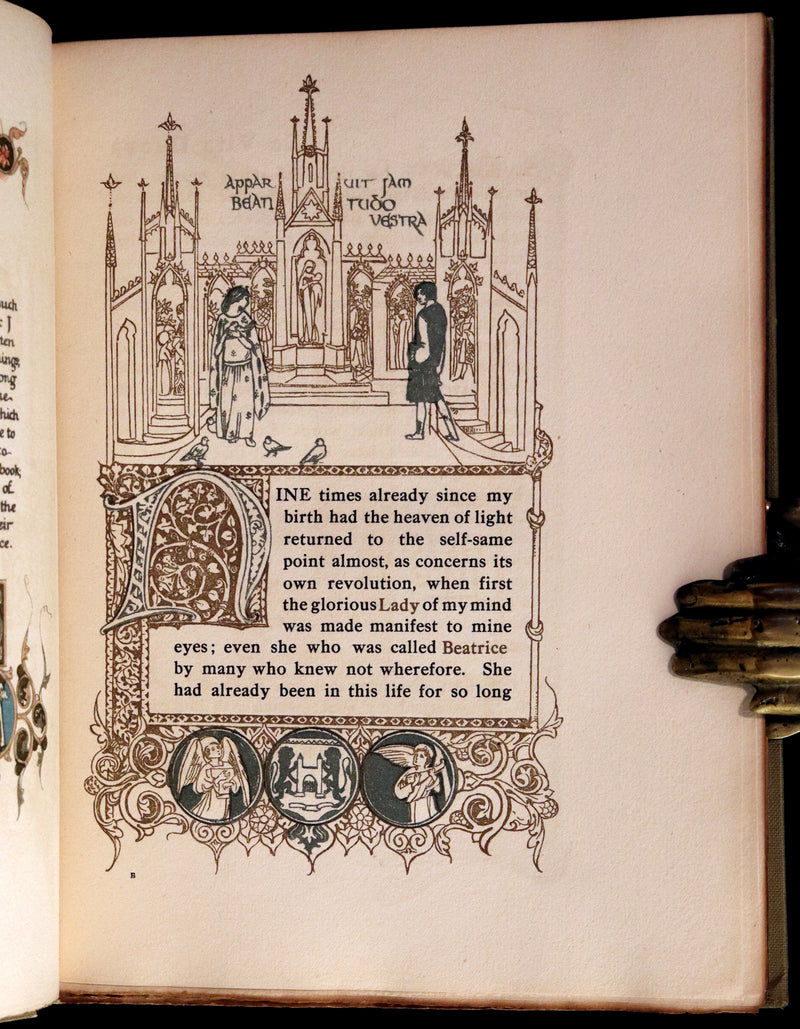 APPAR UIT JAM
BEATI TUDO
VESTRA
NINE times already since my
birth had the heaven of light
returned to the self-same
point almost, as concerns its
own revolution, when first
the glorious Lady of my mind
was made manifest to mine
eyes; even she who was called Beatrice
by many who knew not wherefore. She
had already been in this life for so long
B
uch
J
ten
ings,
ong
hich
e to
book,
of
the
eir
ce.